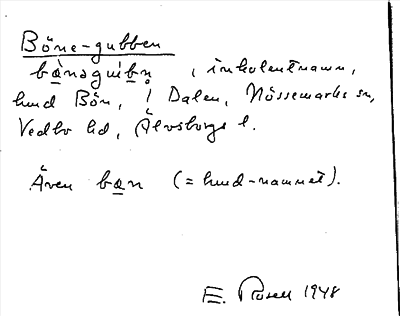 Böne-gubben
bànəgub̀bn̥, inkolentnamn,
hmd Bön, i Dalen, Nössemarks sn,
Vedbo hd, Älvsborgs l.
Även bɑn (= hmd-namnet).
E. Rosell 1948